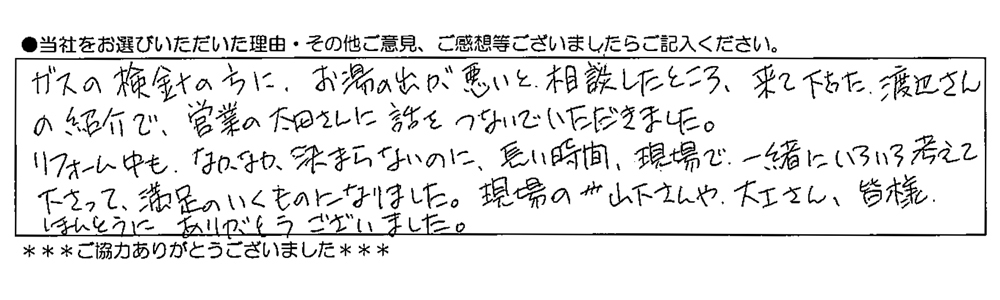 ●当社をお選びいただいた理由・その他ご意見、ご感想等ございましたらご記入ください。
ガスの検針の方に、お湯の出が悪いと相談したところ、来て下さった渡辺さん
の紹介で、営業の太田さんに話をつないでいただきました。
リフォーム中も、なかなか決まらないのに、長い時間、現場で一緒にいろいろ考えて
下さって、満足のいくものになりました。現場の山下さんや、大工さん、皆様
ほんとうにありがとうございました。
＊＊＊ご協力ありがとうございました＊＊＊